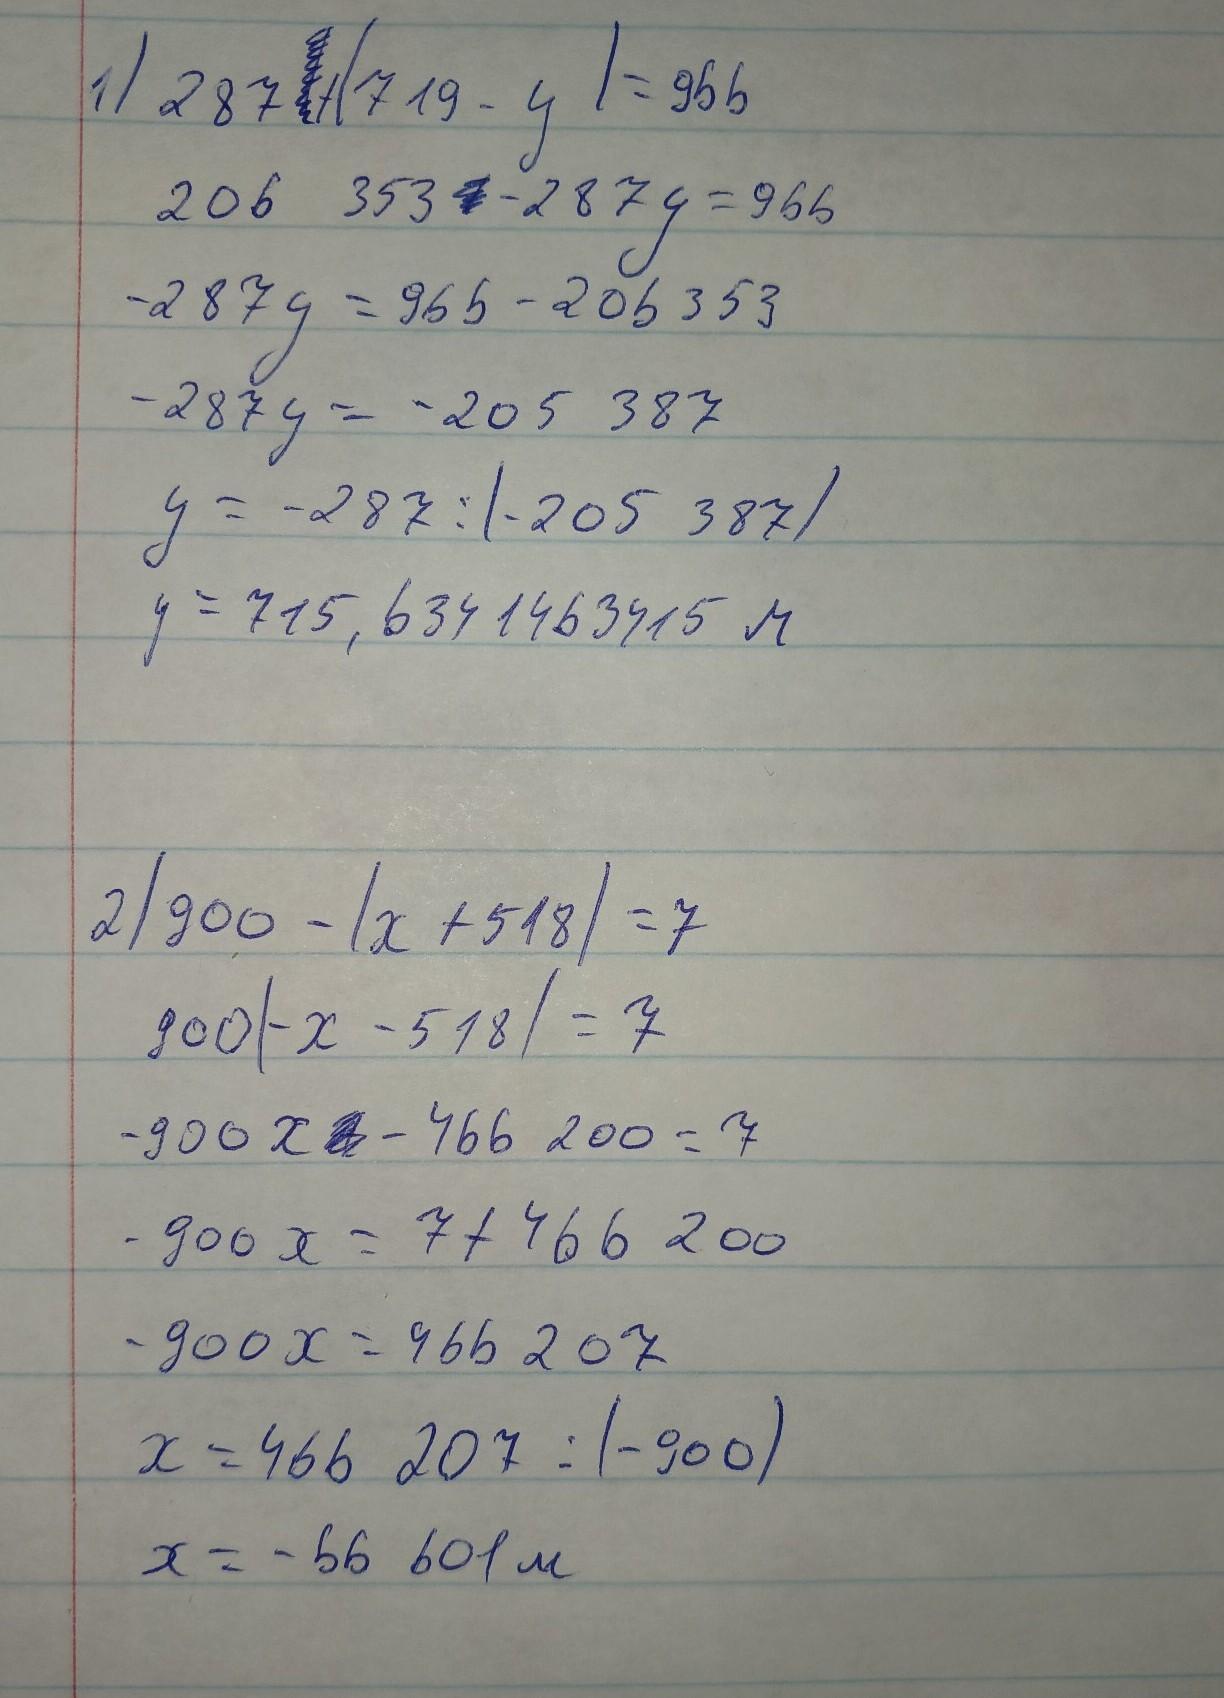 1) 287+(719-y)=966
206 353-287y=966
-287y=966-206353
-287y=-205 387
y=-287:(-205 387)
y=715,6341463415 м
2) 900-(x+518)=7
900(-x-518)=7
-900x-466 200=7
-900x=7+466 200
-900x=466 207
x=466 207:(-900)
x=-66 601 м